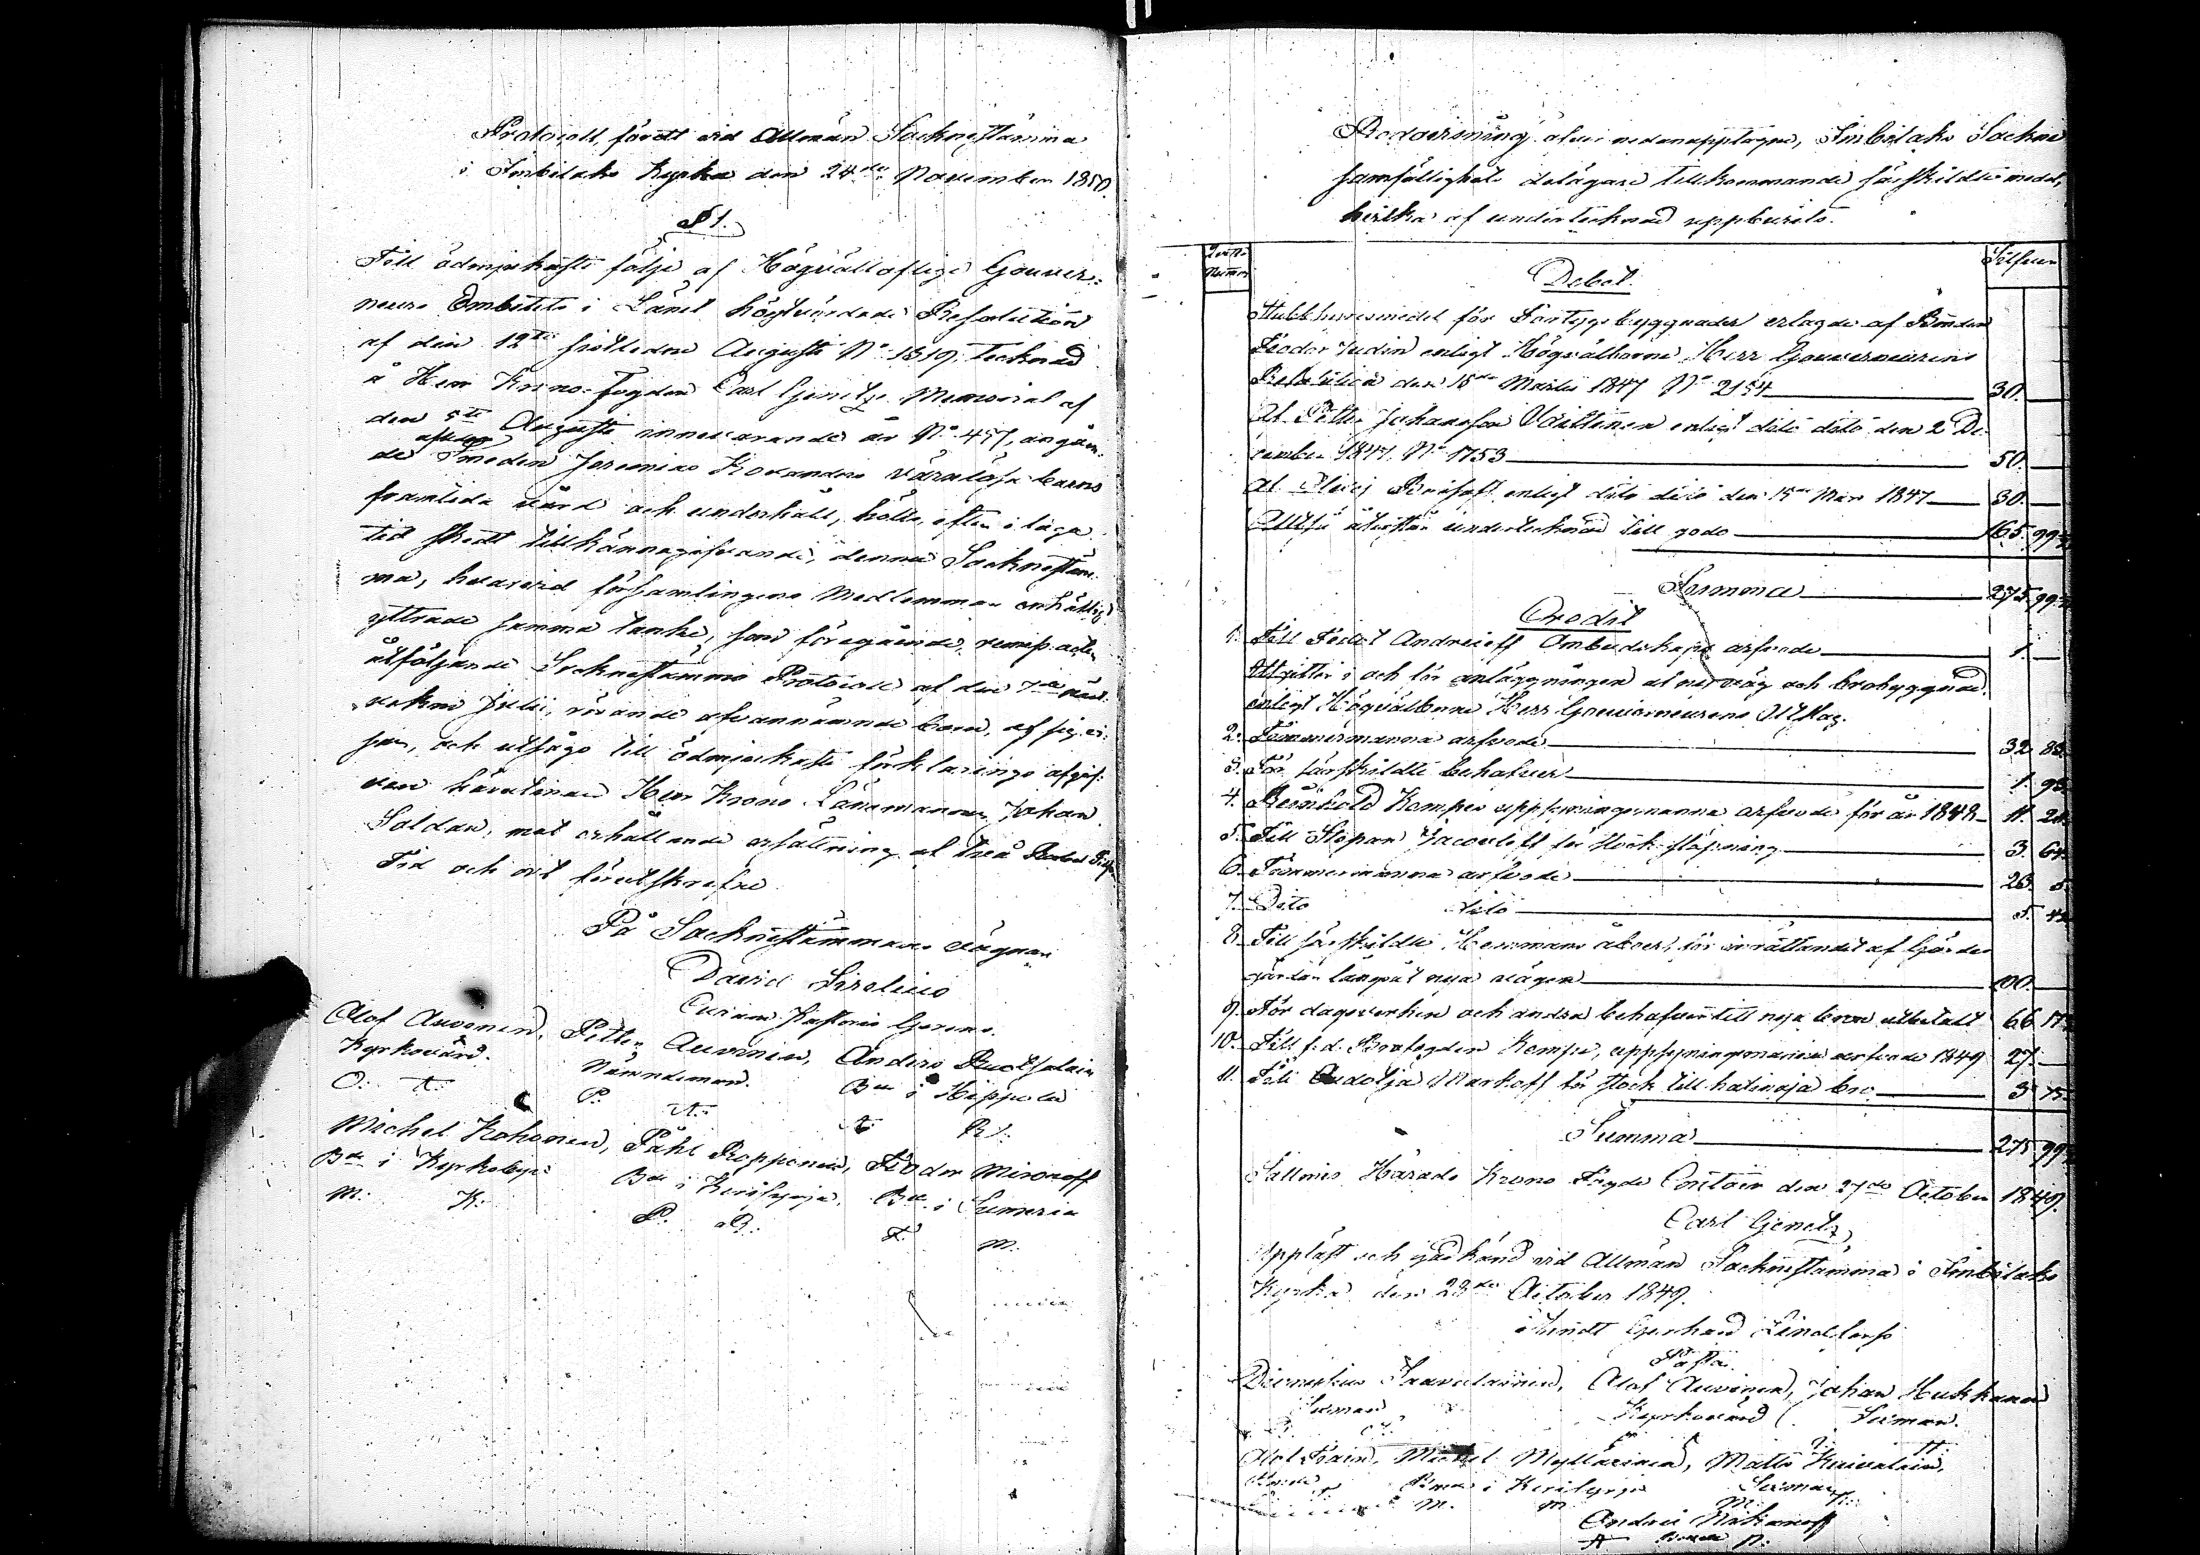 Protocoll, fördt vid Allmän Sockenstämma
i Imbilaks Kyrka den 24de November 1850.
§ 1.
Till ödmjukaste följe af Högvällofliga Gouver-
neurs Embetets i Länet högtvördade Resolution
af den 12te sistledne Augusti No 1319, tecknad
å Herr Krono-Fogden Carl Genetz Memorial af
den 5te Augusti innevarande år No 457, angåen-
de Smeden Jeremias Kovanens värnlösa barns
framtida vård och underhåll, hölls, efter i laga
tid skedt tillkännagifvande, denna Sockenstäm-
ma, hvarvid församlingens Medlemmar enhälligt
yttrade samma tanke, som föregående
åtföljande Sockenstämmo Protocoll af den 7de
Julii, rörande ofvannämnde barn, af sig
och till ödmjukaste förklarings afgif-
vare Herr Krono-Länsmannen Johan
Soldan, mot erhållande ersättning af två Rubel Silfver
Tid och ort förutskrefne
På Sockenstämmans vägnar
David Sirelius
Curam Pastoris Gerens.
Olof Auvinen, Petter Auvinen, Anders Ruotsalain
Kyrkovärd. Nämndeman. Bde i Hippola
O. A. P. A. A. R.
Michel Kohonen, Påhl Ropponen, Feodor Mironoff
Bde i Kyrkoby Bde i Kirilyoja, Bde i Sumeria
M. K. P. R. F. M.
Redovisning öfver nedanupptagne, Imbilaks Sockne
samfällighets delägare tillkommande särskildte medel,
hvilka af undertecknad uppburits.
Silfver
Debet.
Stubbhyresmedel för Fartygsbyggnader erlagde af Bonden
Feodor Judin enligt Högvälborne Herr Gouverneurens
Resolution den 15de Martii 1847 No 2154 30.
Af Petter Johansson Väistinen enligt dito dito den 2 De-
cember 1847. No 1753 50.
Af Alexej enligt dito dito den 15de Mars 1847 30.
Alltså återstår undertecknad till godo 165. 99
Summa 275 99
Credit
1. Till Fedot Andreieff Ombudskaps arfvode 1.
Utgifter i och för anläggningen af ny väg och brobyggnad
enligt Högvälborne Herr Gouverneurens Utslag.
2. Timmermanna arfvode 32 83
3. För särskildte behofver 1. 98
4. Reinhold Kempes uppsyningsmanna arfvode för år 1848 11. 20
5. Till Stepan Jacovleff för stock släpning 3. 64
6. Timmermanna arfvode 23. 5
7. Dito dito 5. 42
8. Till särskildte Hemmans åboer, för inrättandet af Gärdes
gårdar längsåt nya vägen 100.
9. För dagsverken och andra behofver till nya bron utbetalt 66 17
10. Till f. d. Brofogden Kempe, uppsyningsmanna arfvode 1849 27.
11. Till Audotja Markoff för stock till bro 3 75
Summa 275 99
Salmis Härads Krono Fogde Contoir den 27de October 1849.
Carl Genetz
Uppläst och godkänd vid Allmän Sockenstämma i Imbilaks
Kyrka den 28de October 1849.
Gerhard Lindfors
Pastor.
Dionysius Saavalainen, Olof Auvinen, Johan Hukkanen
Sexman Kyrkovärd Sexman.
Olof Michel Myllärinen, Matts Kuivalain,
i Kirilyoja Sexman
M. M. M. K.
Andrei
Bonde